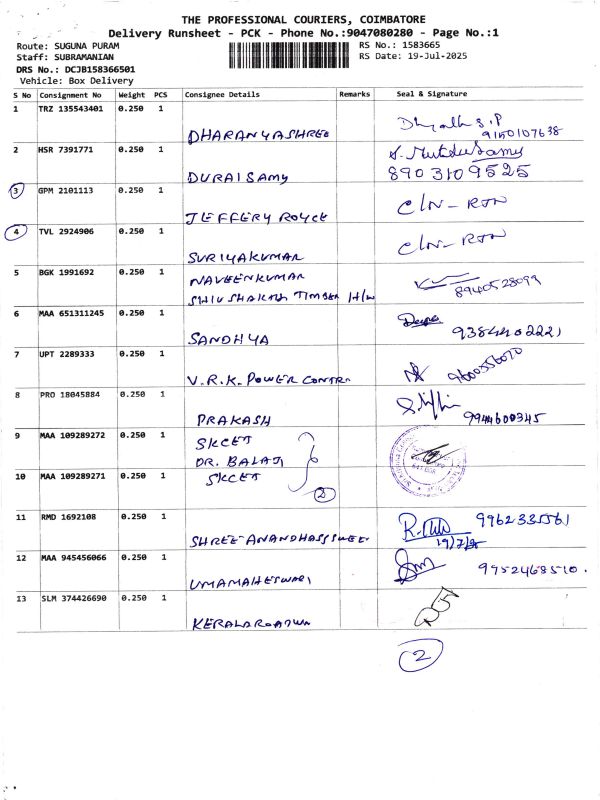 THE PROFESSIONAL COURIERS, COIMBATORE
Delivery Runsheet - PCK - Phone No.:9047080280 - Page No.:1
Route: SUGUNA PURAM RS No.: 1583665
Staff: SUBRAMANIAN RS Date: 19-Jul-2025
DRS No.: DCJB158366501
Vehicle: Box Delivery
S No Consignment No Weight PCS Consignee Details Remarks Seal & Signature
1 TRZ 135543401 0.250 1
DHARANYASHREE 9150107638
2 HSR 7391771 0.250 1
DURAISAMY 8903109525
3 GPM 2101113 0.250 1
JEFFERY ROYCE C/N- RTN
4 TVL 2924906 0.250 1
SURIYAKUMAR C/N- RTN
5 BGK 1991692 0.250 1 NAVEENKUMAR
SHIVSHAKTHI TIMBER H/W 8940528099
6 MAA 651311245 0.250 1
SANDHYA 93844402221
7 UPT 2289333 0.250 1
V.R.K. POWER CONTR. 9600556070
8 PRO 18045884 0.250 1
PRAKASH 9944600345
9 MAA 109289272 0.250 1 SKCET
DR. BALAJI
10 MAA 109289271 0.250 1 SKCET
2
11 RMD 1692108 0.250 1
SHREE ANANDHASS SWEE 9962335561
19/7/25
12 MAA 945456066 0.250 1
UMAMAHESWARI 9952468510.
13 SLM 374426690 0.250 1
KERALA ROADWA
2